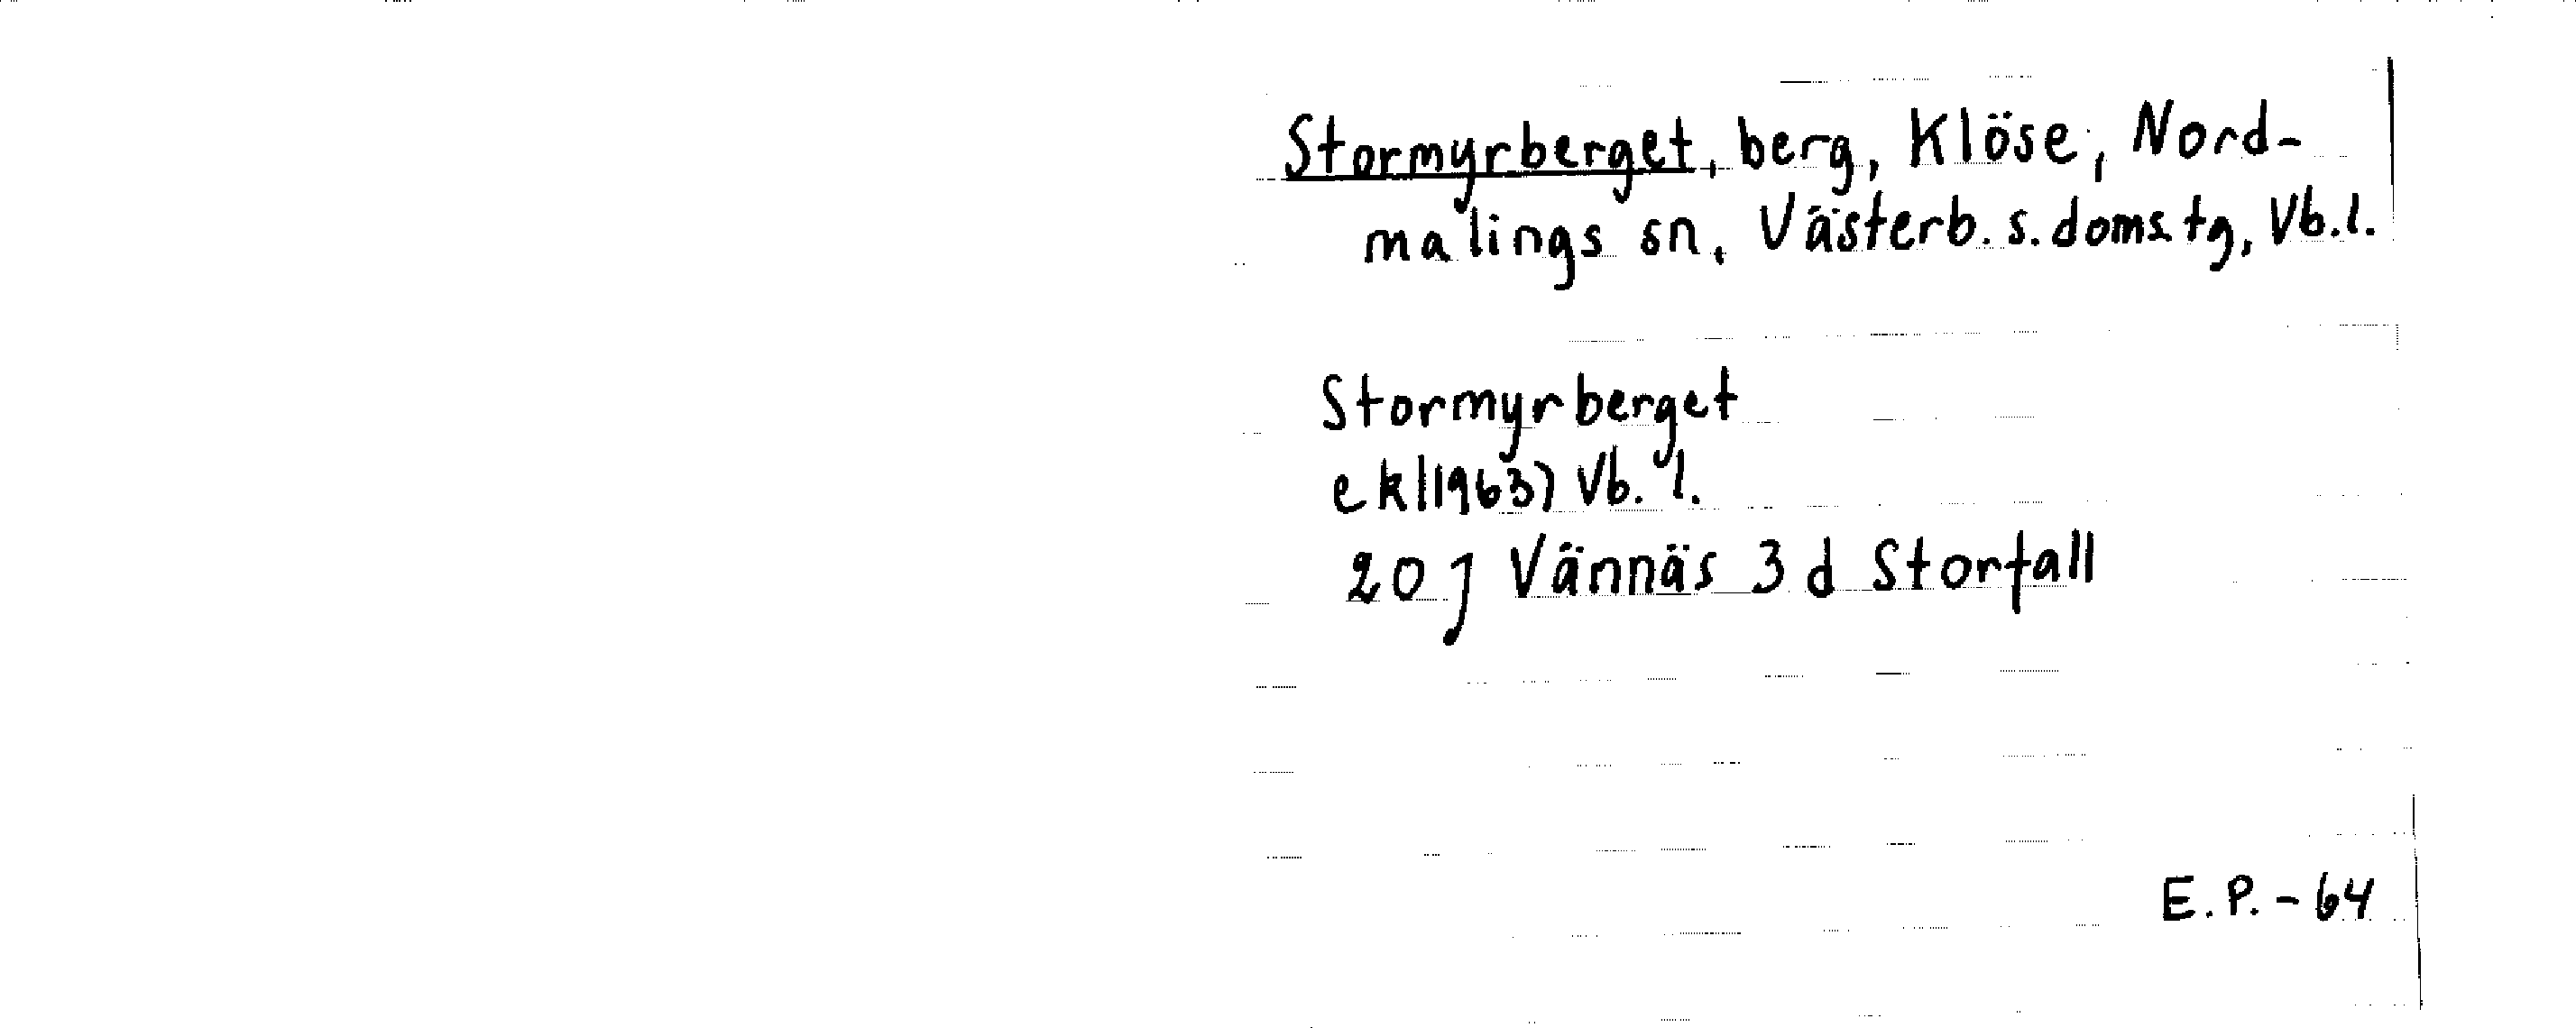 Stormyrberget, berg, Klöse, Nord-
malings sn, Västerb. s. doms.tg, Vb.l.
Stormyrberget
ek(1963) Vb. l.
20 J Vännäs 3 d Storfall
E.P. - 64